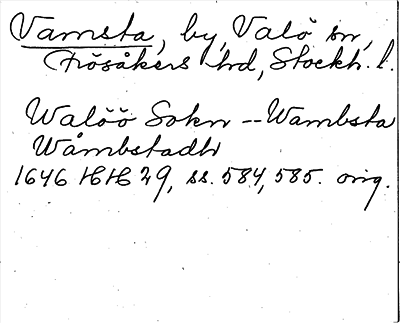 Vamsta, by, Valö sn,
Frösåkers hd, Stockh. l.
Walöö Sokn -- Wambsta
Wåmbstadh
1646 HH 29, ss. 584, 585. orig.